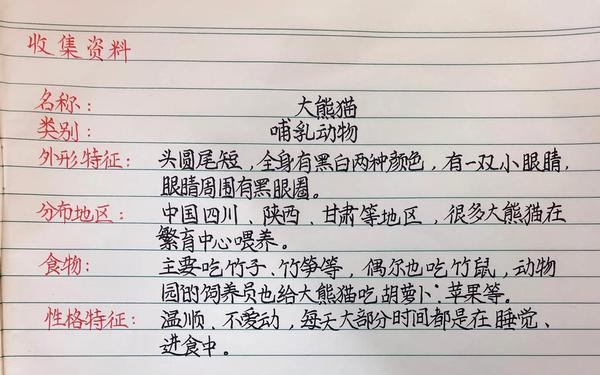 收集资料
名称： 大熊猫
类别： 哺乳动物
外形特征： 头圆尾短，全身有黑白两种颜色，有一双小眼睛，
眼睛周围有黑眼圈。
分布地区： 中国四川、陕西、甘肃等地区，很多大熊猫在
繁育中心喂养。
食物： 主要吃竹子、竹笋等，偶尔也吃竹鼠，动物
园的饲养员也给大熊猫吃胡萝卜、苹果等。
性格特征： 温顺、不爱动，每天大部分时间都是在睡觉、
进食中。